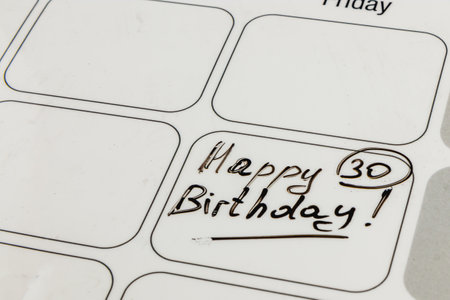 Friday
Happy 30
Birthday!